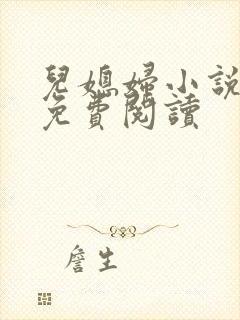 兒媳婦小說
免費閱讀
詹生